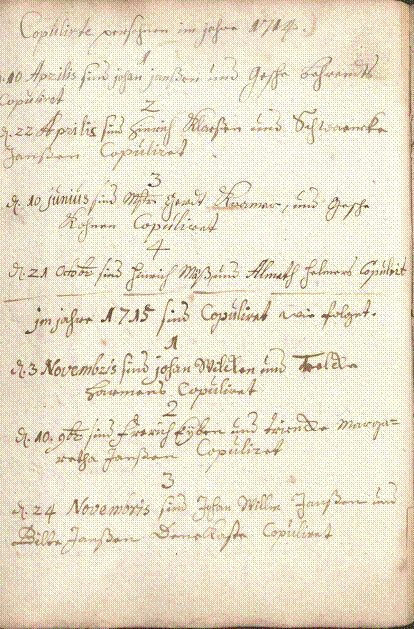 Copulirte persohnen im jahre 1714.
1
d. 10 Aprilis sind johan janßen und Gesche Behrendts
Copuliret
2
d. 22 Aprilis sind Hinrich Klaeßen und
Janßen Copuliret
3
d. 10 junius sind Mstr. Gerdt Kramer, und Gesche
Kohnen Copuliret
4
d. 21 Octobr sind Hinrich und Almeth Helmers Copuliret
im jahre 1715 sind Copuliret wie folget.
1
d. 3 Novembris sind johan Wilken und
Harmens Copuliret
2
d. 10. 9br sind Frerich Eyben und Marga-
retha Janßen Copuliret
3
d. 24 Novembris sind Johan Willm Janßen und
Janßen Copuliret